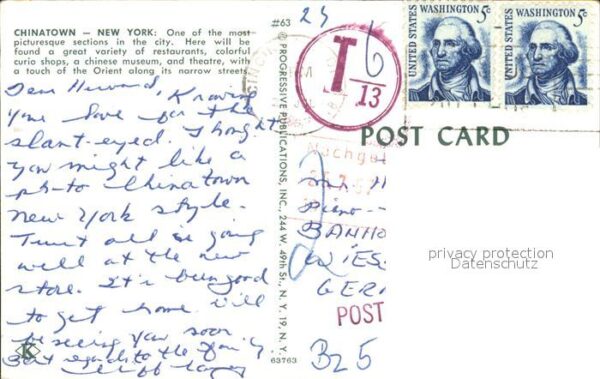 CHINATOWN — NEW YORK: One of the most
picturesque sections in the city. Here will be
found a great variety of restaurants, colorful
curio shops, a chinese museum, and theatre, with
a touch of the Orient along its narrow streets.
Dear Howard, Knowing
your love for the
slant-eyed. Thought
you might like a
photo Chinatown
New York style.
Trust all is going
well at the new
store. It's been good
to get home. Will
be seeing you soon
Best regards to the family
Cliff
K
#63
24
© PROGRESSIVE PUBLICATIONS, INC., 244 W. 49th St., N. Y. 19, N. Y.
63763
T 6/13
UNITED STATES WASHINGTON 5c
UNITED STATES WASHINGTON 5c
POST CARD
Nachgeb
2
Piano
BANHO
WIES
GERM
POST
B25
privacy protection
Datenschutz